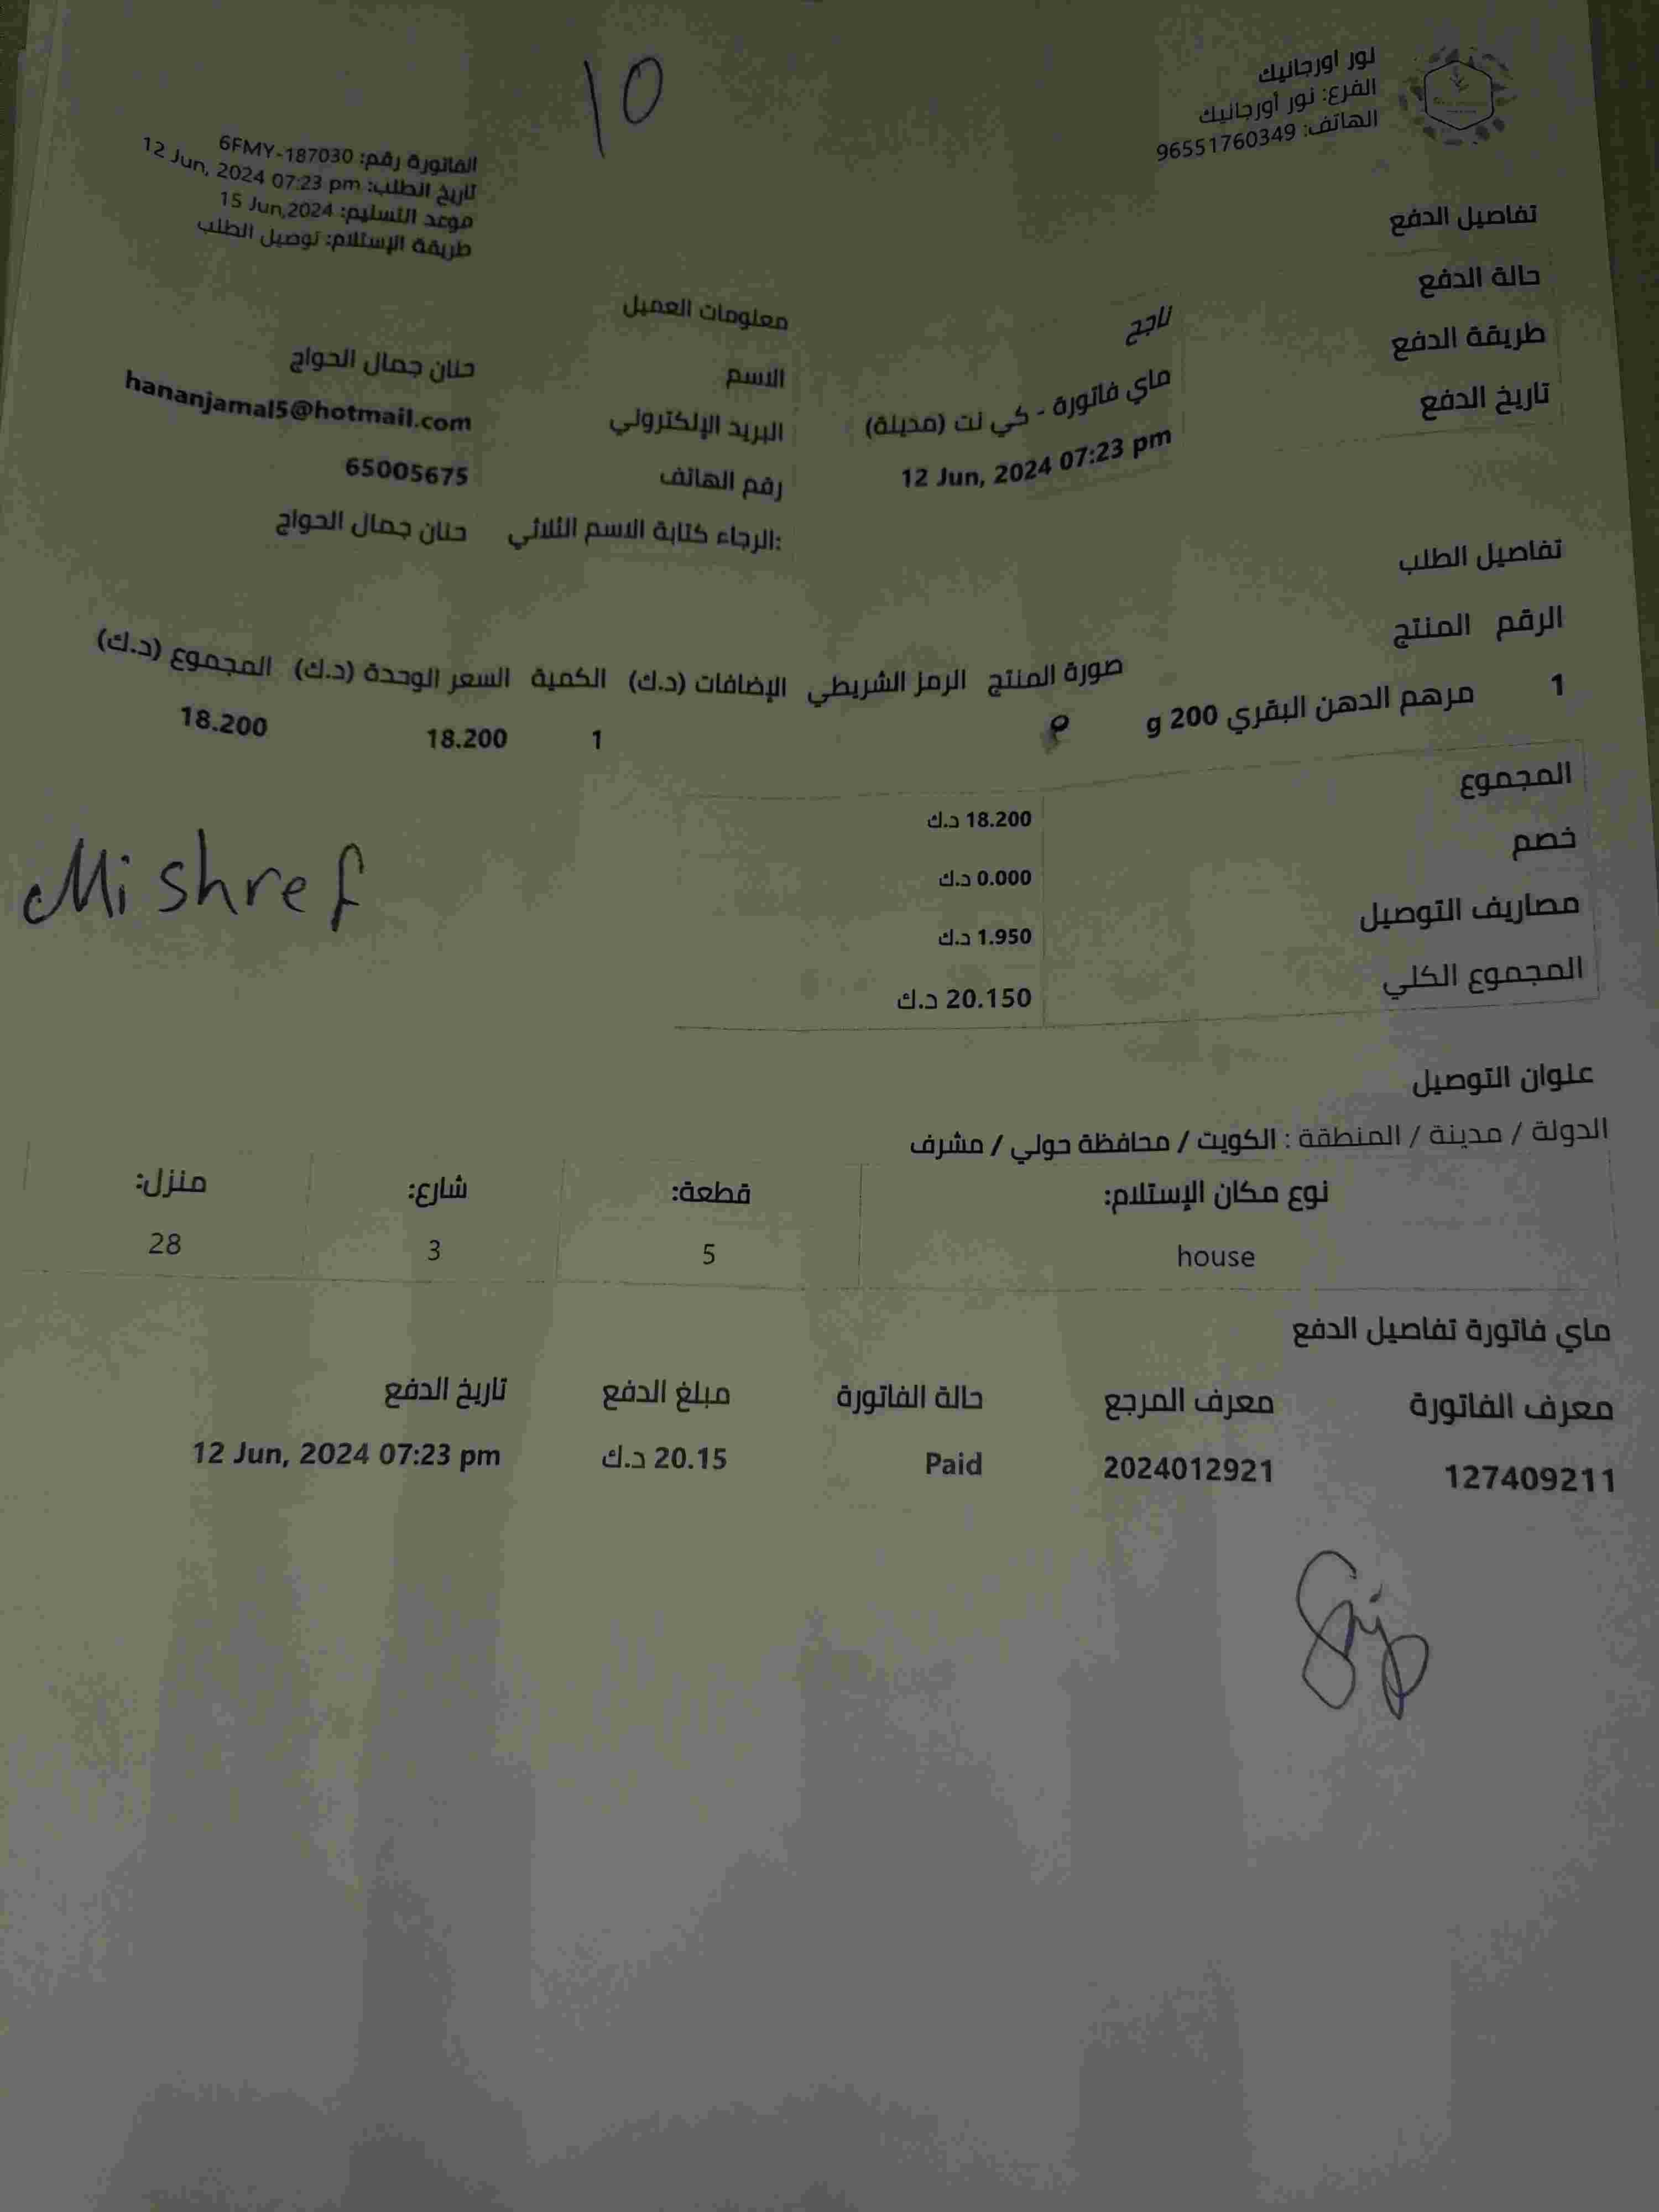 نور اورجانيك
الفرع: نور أورجانيك
الهاتف: 96551760349
10
الفاتورة رقم: 6FMY-187030
تاريخ الطلب: 12 Jun, 2024 07:23 pm
موعد التسليم: 15 Jun,2024
طريقة الإستلام: توصيل الطلب
تفاصيل الدفع
حالة الدفع ناجح
طريقة الدفع ماي فاتورة - كي نت (مدينة)
تاريخ الدفع 12 Jun, 2024 07:23 pm
معلومات العميل
الاسم حنان جمال الحواج
البريد الإلكتروني hananjamal5@hotmail.com
رقم الهاتف 65005675
الرجاء كتابة الاسم الثلاثي: حنان جمال الحواج
تفاصيل الطلب
الرقم المنتج صورة المنتج الرمز الشريطي الإضافات (د.ك) الكمية السعر الوحدة (د.ك) المجموع (د.ك)
1 مرهم الدهن البقري 200 g 1 18.200 18.200
المجموع 18.200 د.ك
خصم 0.000 د.ك
مصاريف التوصيل 1.950 د.ك
المجموع الكلي 20.150 د.ك
Mishref
عنوان التوصيل
الدولة / مدينة / المنطقة : الكويت / محافظة حولي / مشرف
نوع مكان الإستلام: قطعة: شارع: منزل:
house 5 3 28
ماي فاتورة تفاصيل الدفع
معرف الفاتورة معرف المرجع حالة الفاتورة مبلغ الدفع تاريخ الدفع
127409211 2024012921 Paid 20.15 د.ك 12 Jun, 2024 07:23 pm